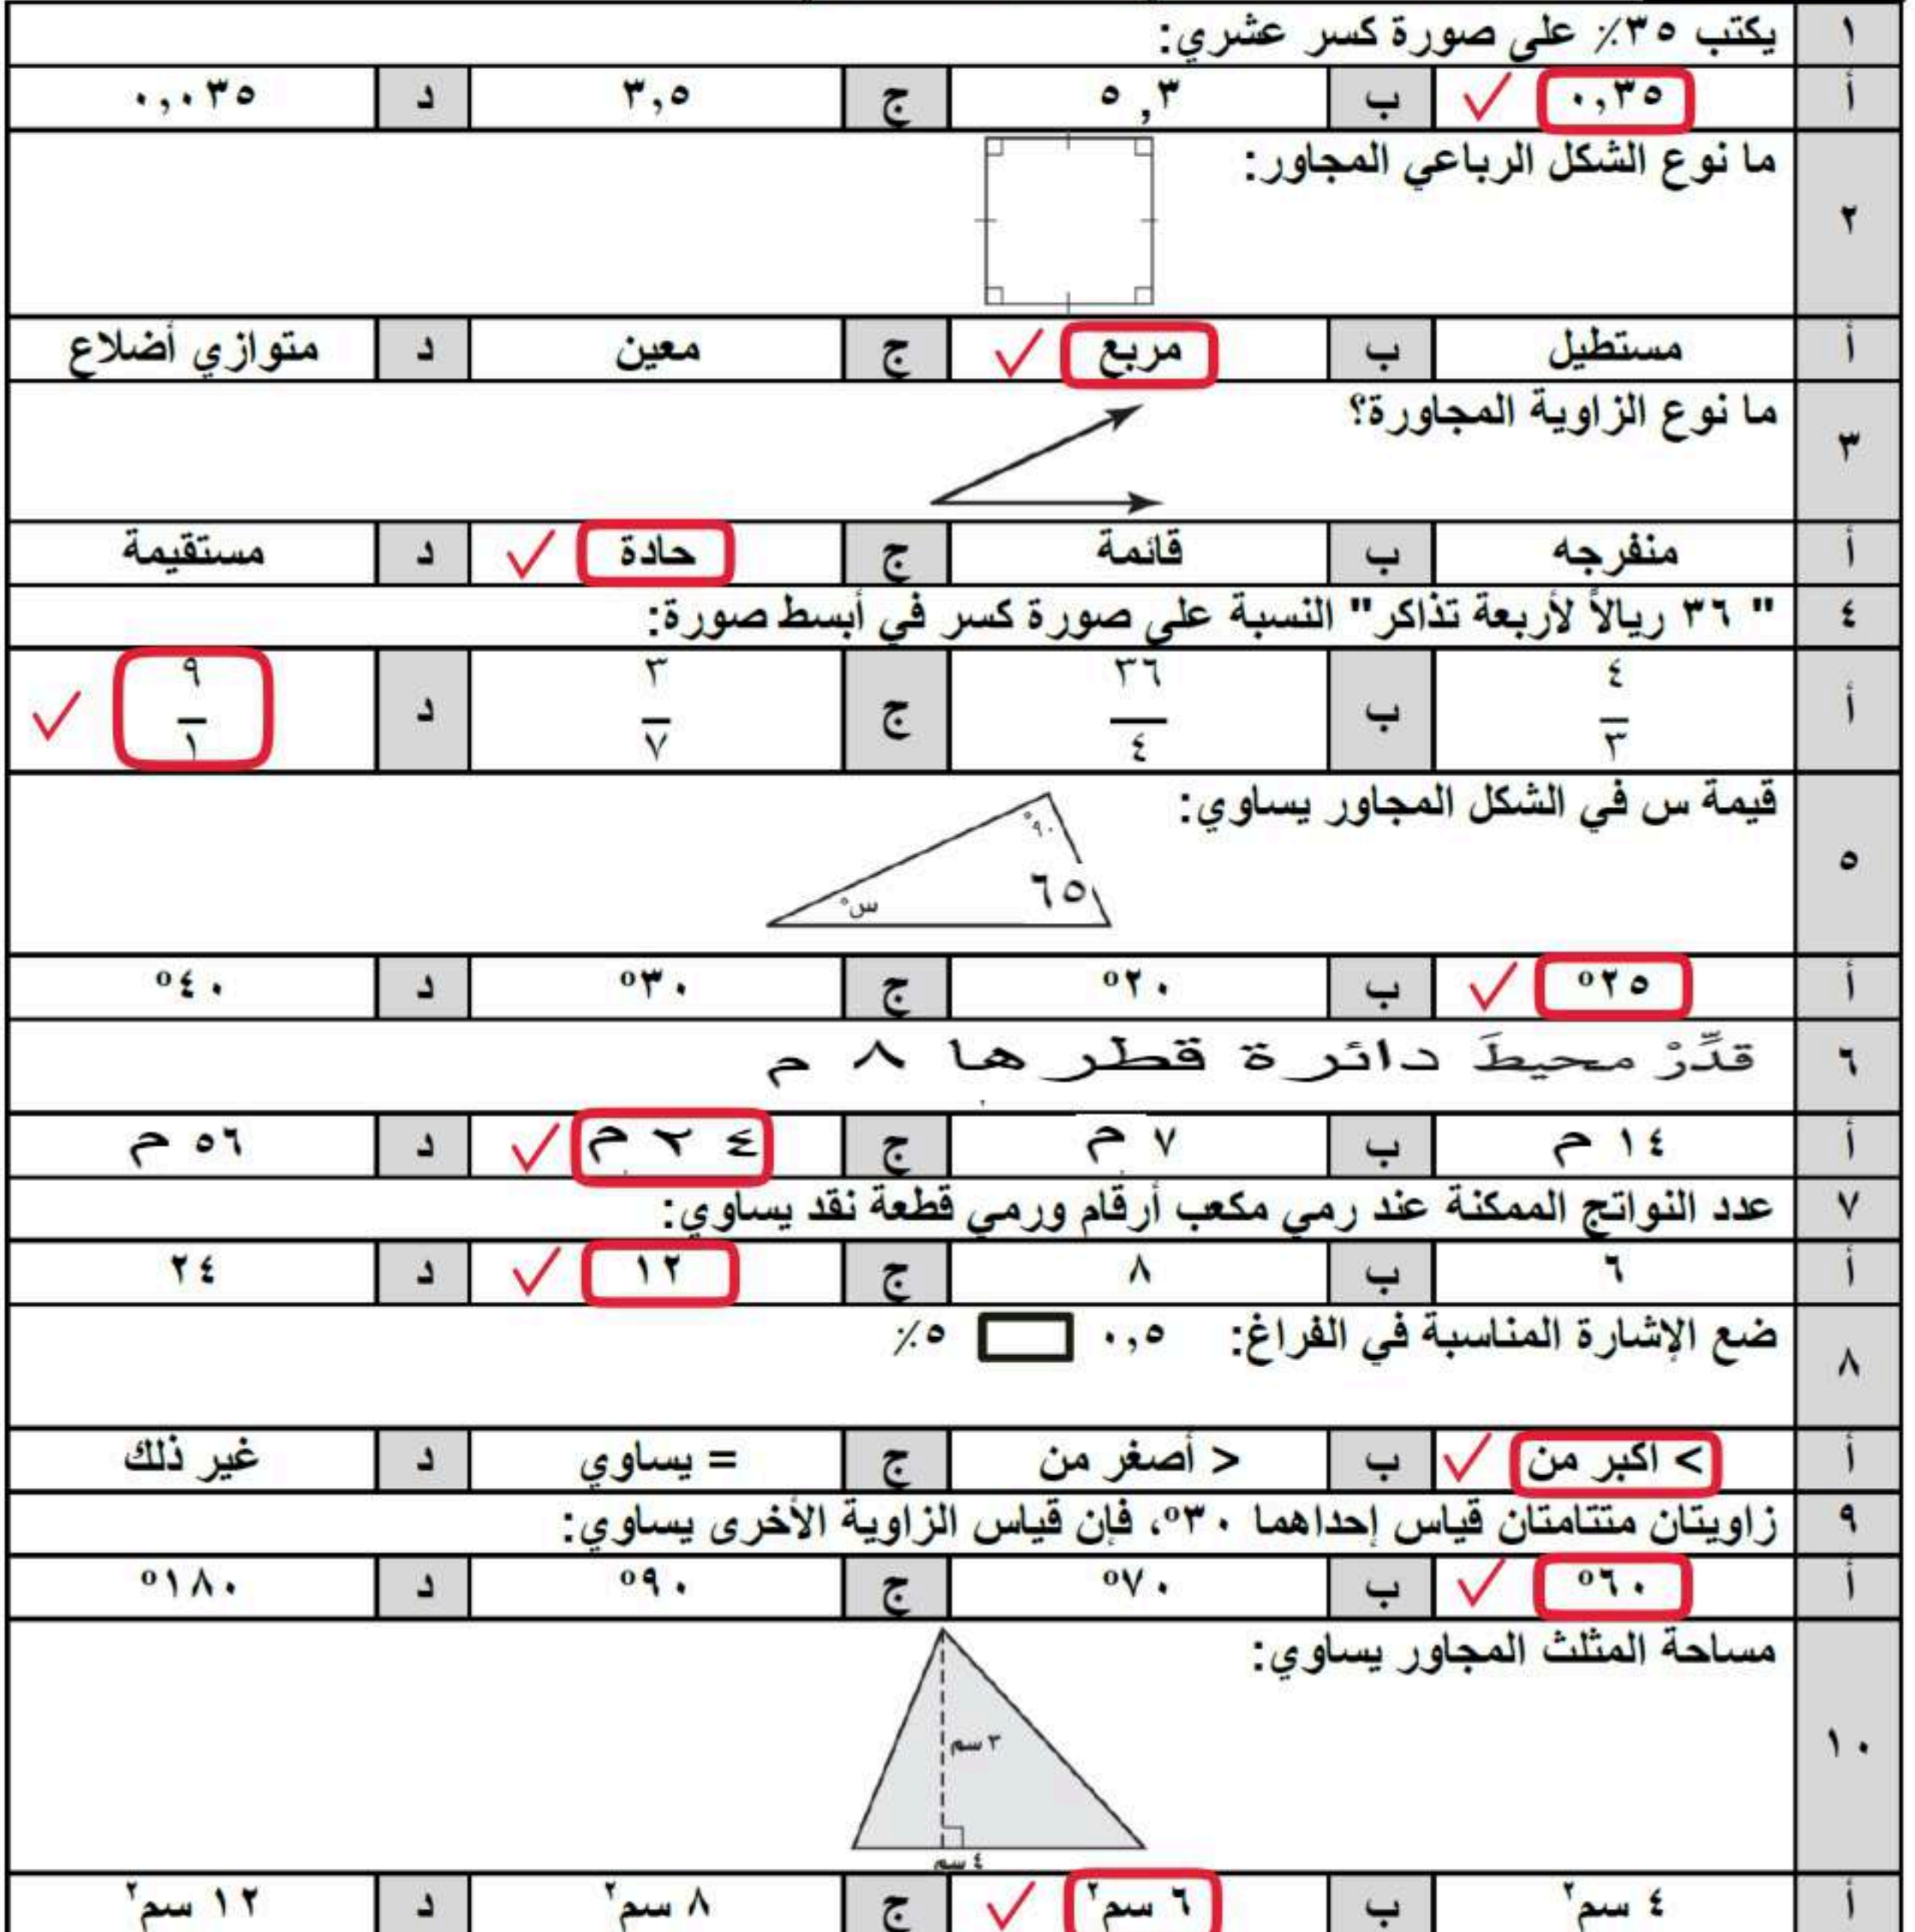 ١ يكتب ٣٥٪ على صورة كسر عشري:
أ ٠,٣٥ ب ٥,٣ ج ٣,٥ د ٠,٠٣٥
٢ ما نوع الشكل الرباعي المجاور:
أ مستطيل ب مربع ج معين د متوازي أضلاع
٣ ما نوع الزاوية المجاورة؟
أ منفرجه ب قائمة ج حادة د مستقيمة
٤ " ٣٦ ريالاً لأربعة تذاكر" النسبة على صورة كسر في أبسط صورة:
أ ٤/٣ ب ٣٦/٤ ج ٣/٧ د ٩/١
٥ قيمة س في الشكل المجاور يساوي:
٩٠°
٦٥
س°
أ ٢٥° ب ٢٠° ج ٣٠° د ٤٠°
٦ قدِّرْ محيطَ دائرة قطرها ٨ م
أ ١٤ م ب ٧ م ج ٢٤ م د ٥٦ م
٧ عدد النواتج الممكنة عند رمي مكعب أرقام ورمي قطعة نقد يساوي:
أ ٦ ب ٨ ج ١٢ د ٢٤
٨ ضع الإشارة المناسبة في الفراغ: ٠,٥ ٥٪
أ > اكبر من ب < أصغر من ج = يساوي د غير ذلك
٩ زاويتان متتامتان قياس إحداهما ٣٠°، فإن قياس الزاوية الأخرى يساوي:
أ ٦٠° ب ٧٠° ج ٩٠° د ١٨٠°
١٠ مساحة المثلث المجاور يساوي:
٣ سم
٤ سم
أ ٤ سم٢ ب ٦ سم٢ ج ٨ سم٢ د ١٢ سم٢